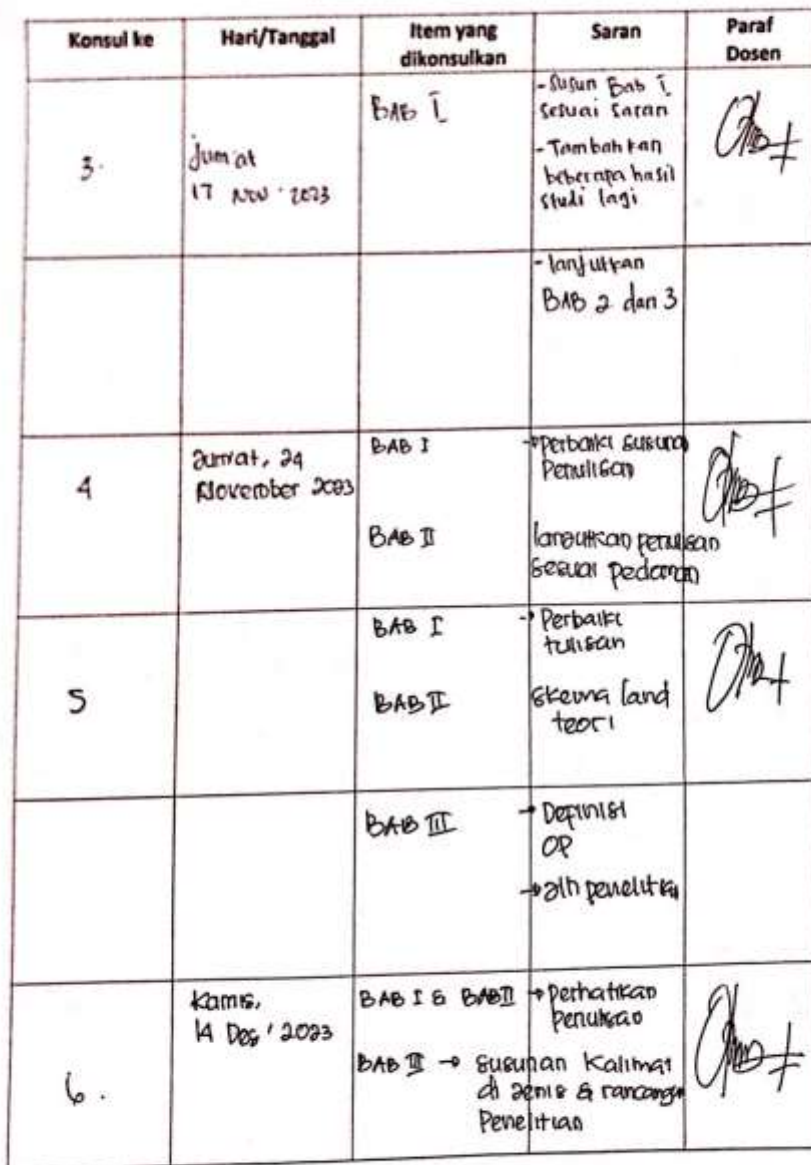 Konsul ke Hari/Tanggal Item yang dikonsulkan Saran Paraf Dosen
3. Jum'at
17 Nov. 2023
BAB I
- Susun Bab I
sesuai saran
- Tambahkan
beberapa hasil
studi lagi
- lanjutkan
BAB 2 dan 3
4
Jum'at, 24
November 2023
BAB I
→ Perbaiki susunan
Penulisan
BAB II
lanjutkan penulisan
sesuai pedoman
5
BAB I
→ Perbaiki
tulisan
BAB II
teori
BAB III
→ Definisi
OP
→ penelitian
6.
Kamis,
14 Des' 2023
BAB I & BAB II → perhatikan
penulisan
BAB III → susunan Kalimat
di Jenis & rancangan
Penelitian